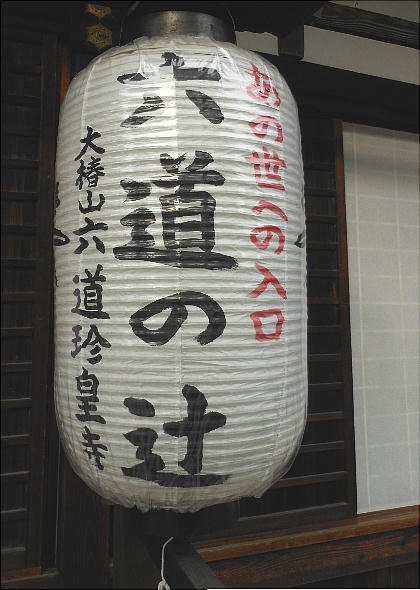 あの世への入口
六道の辻
大椿山六道珍皇寺